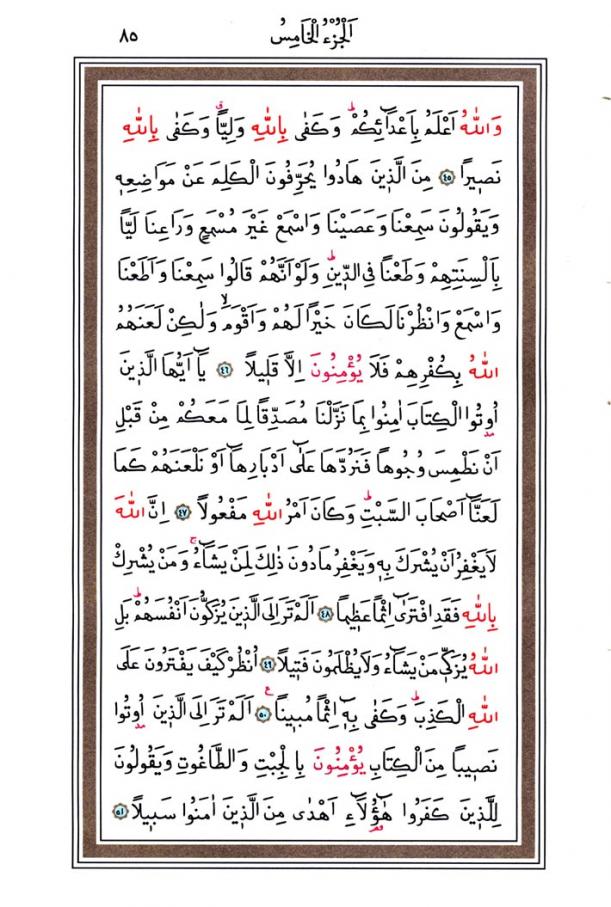 اَلْجُزْءُ الْخَامِسُ ٨٥
وَاللّٰهُ اَعْلَمُ بِاَعْدَٓائِكُمْۜ وَكَفٰى بِاللّٰهِ وَلِيًّاۗ وَكَفٰى بِاللّٰهِ
نَصٖيرًا ﴿٤٥﴾ مِنَ الَّذٖينَ هَادُوا يُحَرِّفُونَ الْكَلِمَ عَنْ مَوَاضِعِهٖ
وَيَقُولُونَ سَمِعْنَا وَعَصَيْنَا وَاسْمَعْ غَيْرَ مُسْمَعٍ وَرَاعِنَا لَيًّا
بِاَلْسِنَتِهِمْ وَطَعْنًا فِى الدّٖينِۜ وَلَوْ اَنَّهُمْ قَالُوا سَمِعْنَا وَاَطَعْنَا
وَاسْمَعْ وَانْظُرْنَا لَكَانَ خَيْرًا لَهُمْ وَاَقْوَمَۙ وَلٰكِنْ لَعَنَهُمُ
اللّٰهُ بِكُفْرِهِمْ فَلَا يُؤْمِنُونَ اِلَّا قَلٖيلًا ﴿٤٦﴾ يَٓا اَيُّهَا الَّذٖينَ
اُو۫تُوا الْكِتَابَ اٰمِنُوا بِمَا نَزَّلْنَا مُصَدِّقًا لِمَا مَعَكُمْ مِنْ قَبْلِ
اَنْ نَطْمِسَ وُجُوهًا فَنَرُدَّهَا عَلٰٓى اَدْبَارِهَٓا اَوْ نَلْعَنَهُمْ كَمَا
لَعَنَّٓا اَصْحَابَ السَّبْتِۜ وَكَانَ اَمْرُ اللّٰهِ مَفْعُولًا ﴿٤٧﴾ اِنَّ اللّٰهَ
لَا يَغْفِرُ اَنْ يُشْرَكَ بِهٖ وَيَغْفِرُ مَادُونَ ذٰلِكَ لِمَنْ يَشَٓاءُۚ وَمَنْ يُشْرِكْ
بِاللّٰهِ فَقَدِ افْتَرٰٓى اِثْمًا عَظٖيمًا ﴿٤٨﴾ اَلَمْ تَرَ اِلَى الَّذٖينَ يُزَكُّونَ اَنْفُسَهُمْۜ بَلِ
اللّٰهُ يُزَكّٖى مَنْ يَشَٓاءُ وَلَا يُظْلَمُونَ فَتٖيلًا ﴿٤٩﴾ اُنْظُرْ كَيْفَ يَفْتَرُونَ عَلَى
اللّٰهِ الْكَذِبَۜ وَكَفٰى بِهٖٓ اِثْمًا مُبٖينًاࣖ ﴿٥٠﴾ اَلَمْ تَرَ اِلَى الَّذٖينَ اُو۫تُوا
نَصٖيبًا مِنَ الْكِتَابِ يُؤْمِنُونَ بِالْجِبْتِ وَالطَّاغُوتِ وَيَقُولُونَ
لِلَّذٖينَ كَفَرُوا هٰٓؤُ۬لَٓاءِ اَهْدٰى مِنَ الَّذٖينَ اٰمَنُوا سَبٖيلًا ﴿٥١﴾